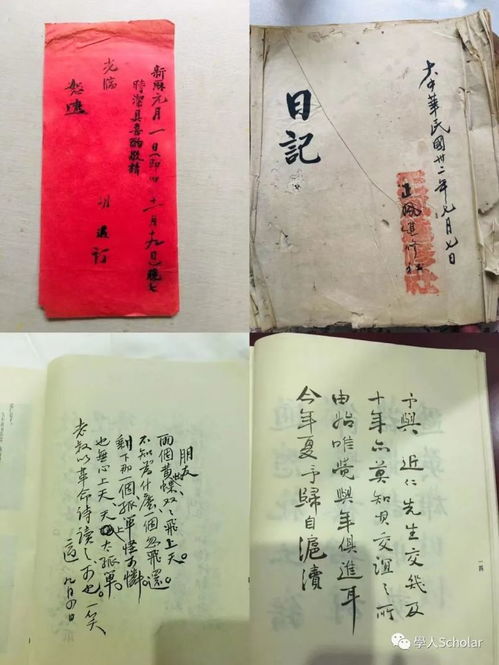 新曆元月一日（即旧十一月十九日）晚七
時潔具喜酌敬請
光臨
訂
恕邀
大中華民國卅二年月七日
正風進修社
日記
朋友
兩個黃蝶双々飛上天。
不知為什麽一個忽飛還。
剩下那一個孤單怪可憐
也無心上天、天上太孤單。
老叔以革命詩讀之可也 一笑
適 九月四日
予與 近仁先生交幾及
十年亦莫知其交誼之所
由始唯覺與年俱進耳
今年夏予歸自滬瀆
學人Scholar